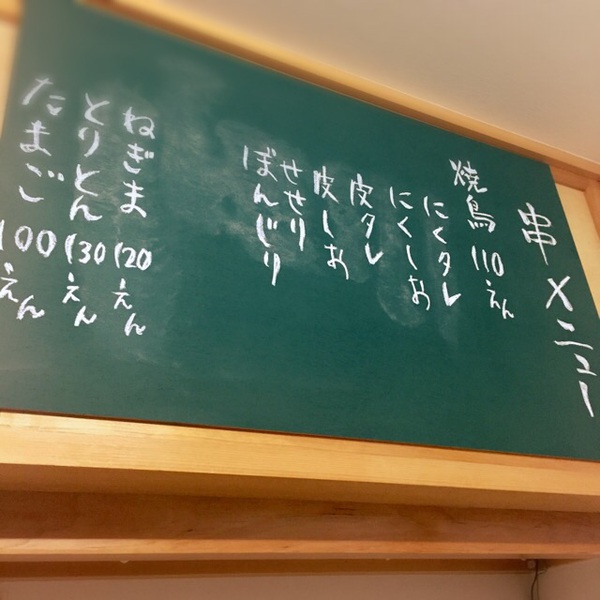 串メニュー
焼鳥 110えん
にくタレ
にくしお
皮タレ
皮しお
せせり
ぼんじり
ねぎま 120えん
とりとん 130えん
たまご 100えん